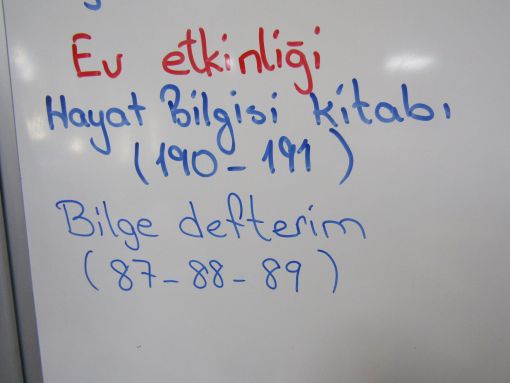 Ev etkinliği
Hayat Bilgisi kitabı
(190-191)
Bilge defterim
(87-88-89)